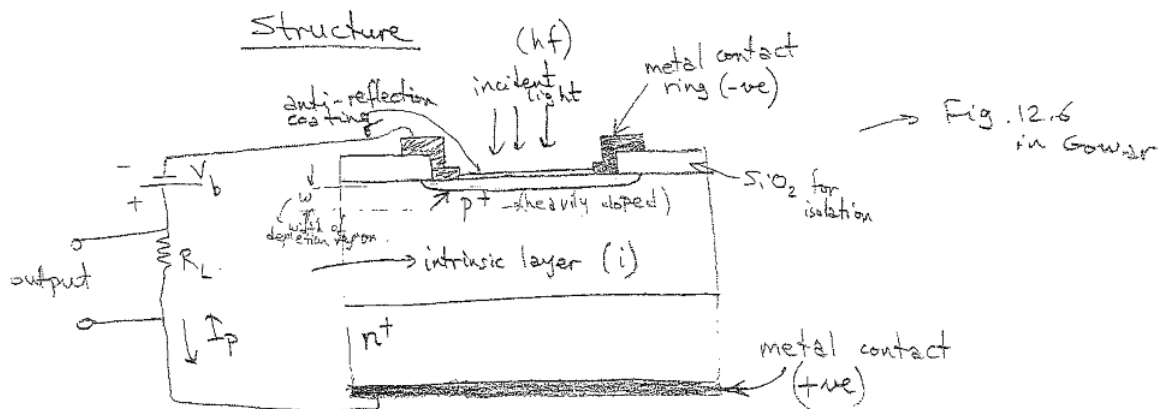 Structure
(hf)
incident
light
metal contact
ring (-ve)
anti-reflection
coating
→ Fig. 12.6
in Gowar
-
V_b
+
w
width of
depletion region
p+ - (heavily doped)
SiO2 for
isolation
output
R_L
→ intrinsic layer (i)
I_p
n+
metal contact
(+ve)